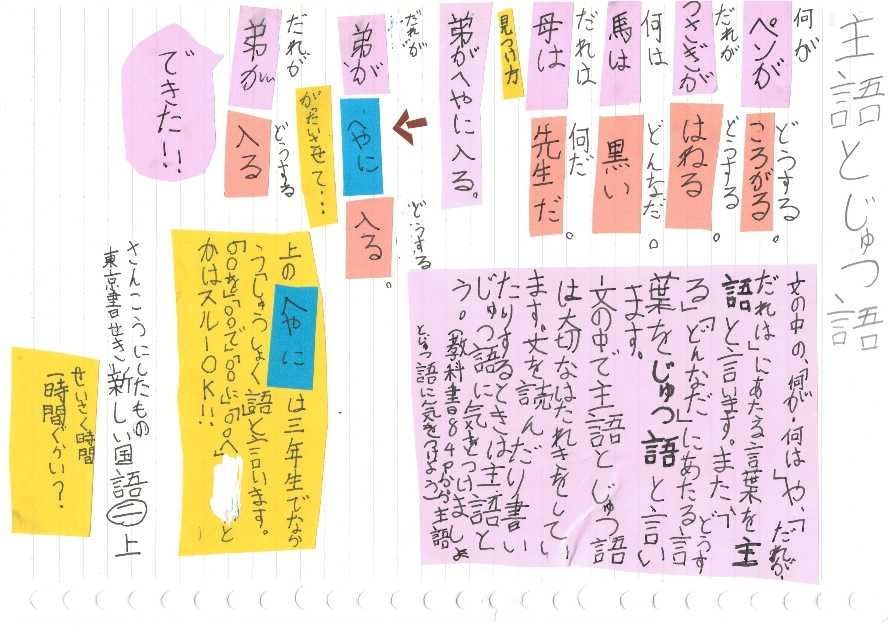 主語とじゅつ語
何が
どうする。
ペンが
ころがる
だれが
どうする。
うさぎが
はねる
何は
どんなだ。
馬は
黒い
だれは
何だ。
母は
先生だ
見つけ方
弟がへやに入る。
だれが
どうする
弟が
へやに
入る。
がったいさせて…
だれが
どうする
弟が
入る
できた!!
文の中の、「何が・何は」や、「だれが、
だれは」にあたる言葉を主
語と言います。また、「どうす
る」「どんなだ」にあたる言
葉をじゅつ語と言い
ます。
文の中で主語とじゅつ語
は大切なはたらきをしてい
ます。文を読んだり書い
たりするときは主語と
じゅつ語に気をつけましょ
う。(教科書84Pから主語
とじゅつ語に気をつけよう)
上のへやには三年生でなら
う「しゅうしょく語」と言います。
「〇〇を」「〇〇で」「〇〇に」「〇〇へ」と
かはスルーOK!!
さんこうにしたもの
東京書せき新しい国語二上
せいさく時間
一時間ぐらい?